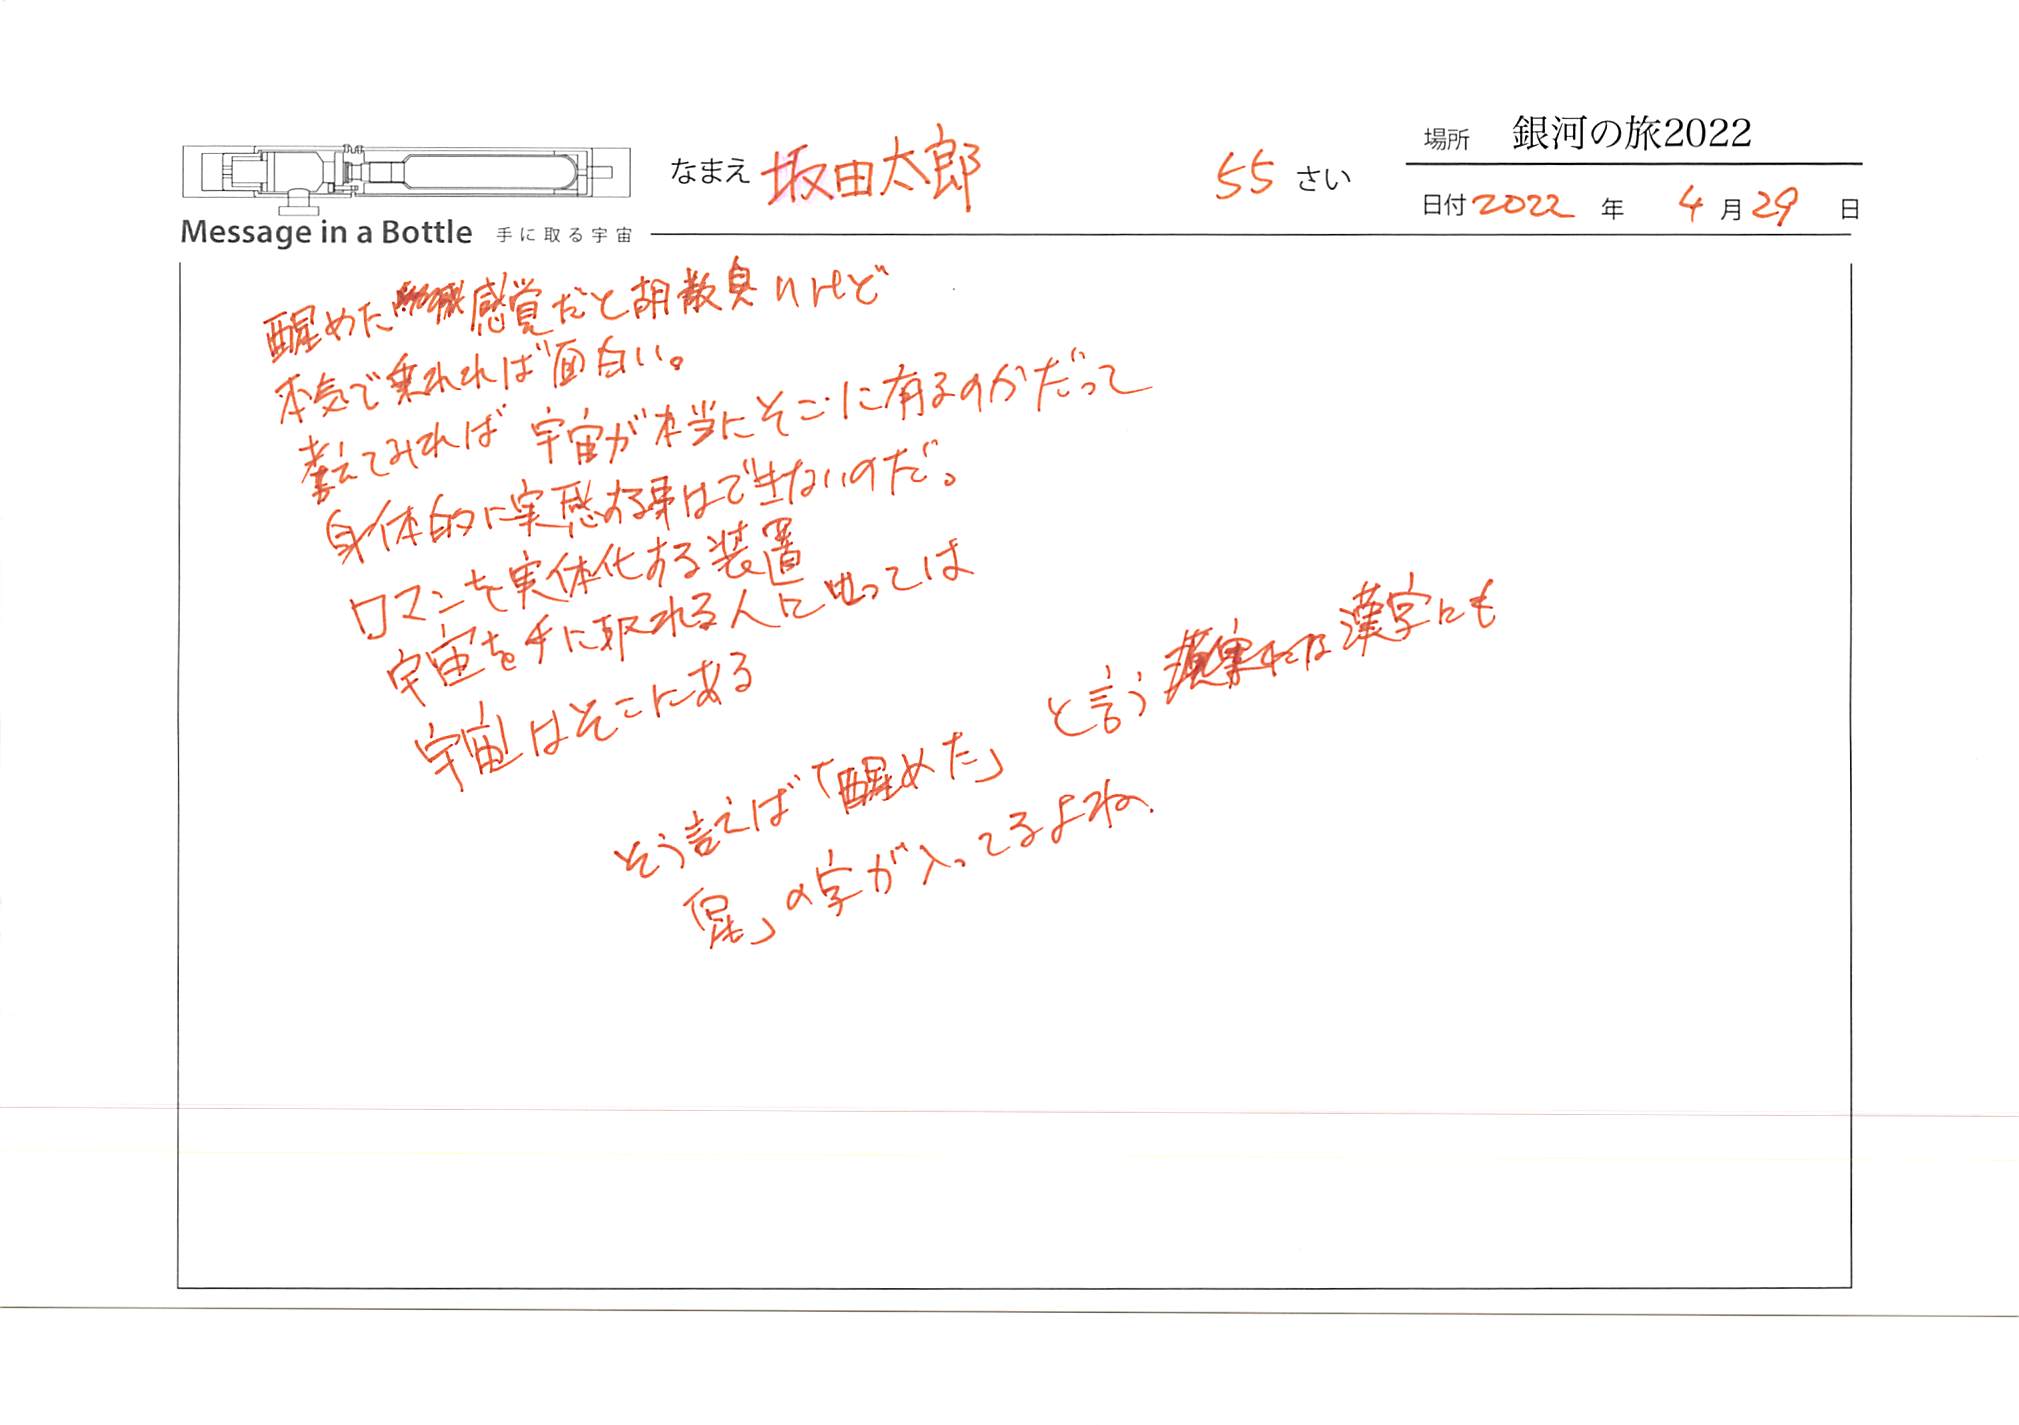 場所 銀河の旅2022
なまえ 坂田太郎 55 さい
日付 2022 年 4 月 29 日
Message in a Bottle 手に取る宇宙
醒めた 感覚だと胡散臭いけど
本気で乗れれば面白い。
考えてみれば 宇宙が本当にそこに有るのかだって
身体的に実感する事はできないのだ。
ロマンを実体化する装置
宇宙を手に取れる人に とっては
宇宙はそこにある
そう言えば「醒めた」 と言う 漢字にも
「星」の字が入ってるよね、